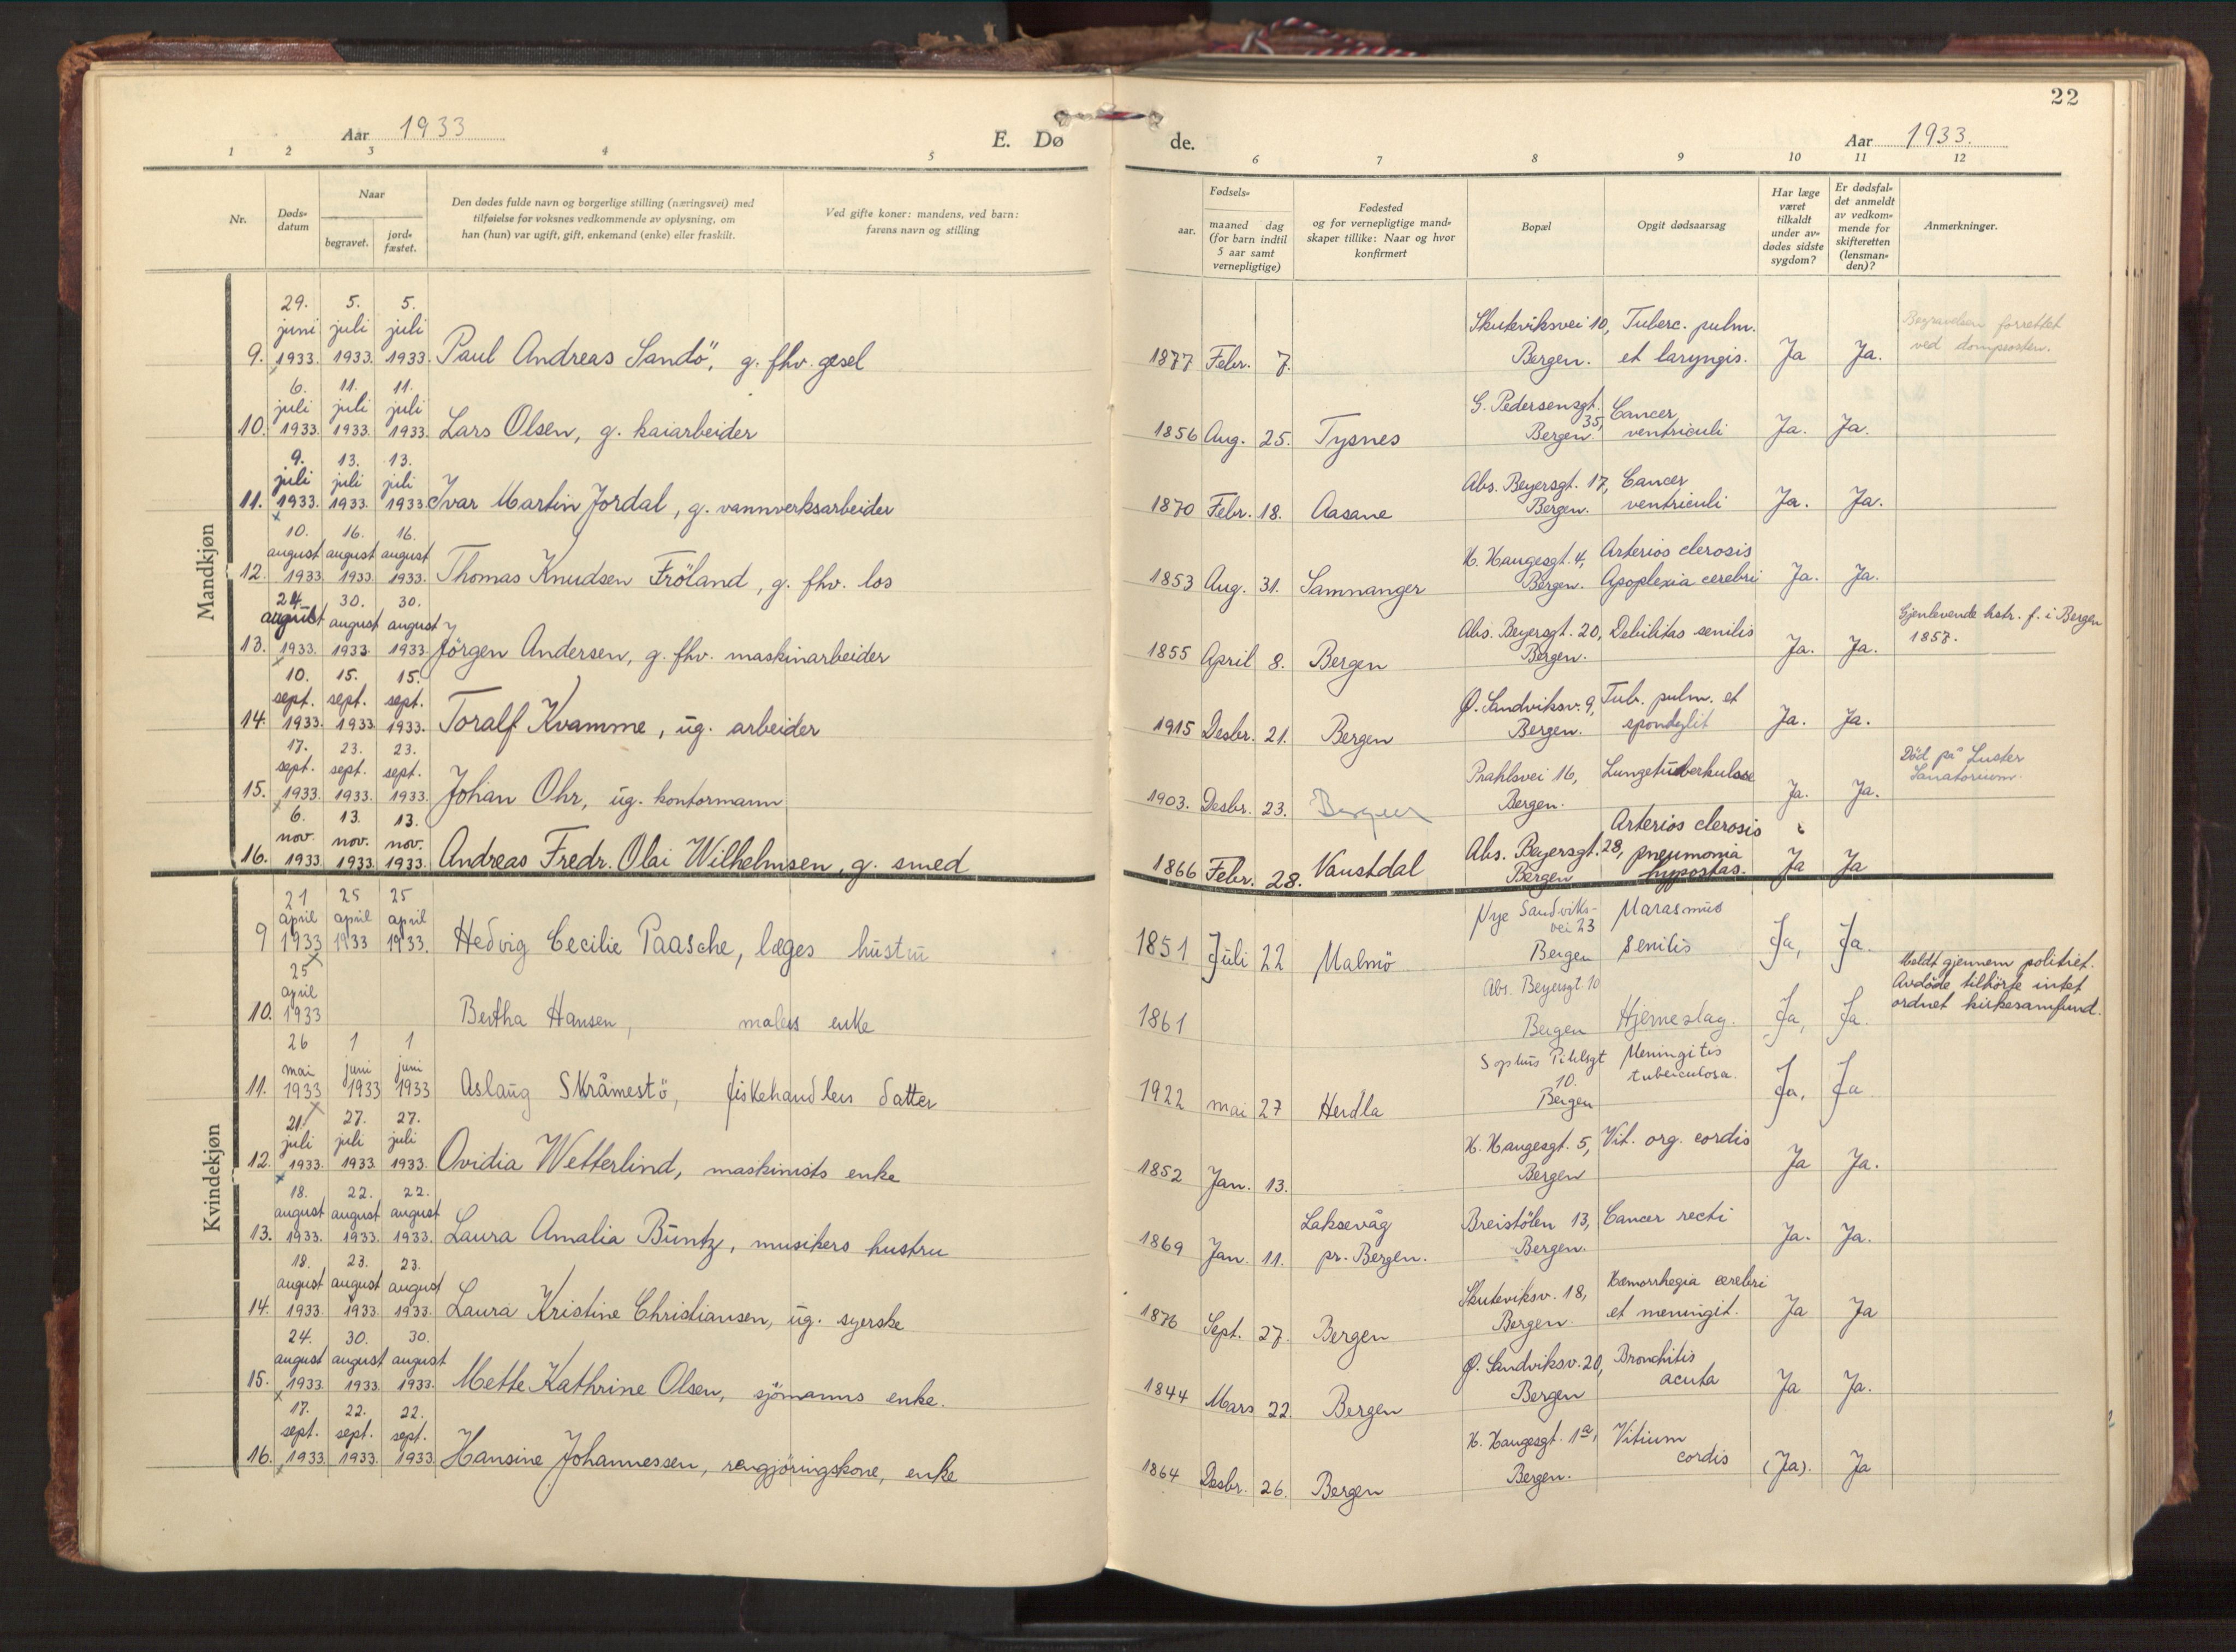 22
Aar 1933
E. Dø
de.
Aar 1933.
1 2 3 4 5
6 7 8 9 10 11 12
Nr.
Døds-
datum
Naar
begravet.
jord-
fæstet.
Den dødes fulde navn og borgerlige stilling (næringsvei) med
tilføielse for voksnes vedkommende av oplysning, om
han (hun) var ugift, gift, enkemand (enke) eller fraskilt.
Ved gifte koner: mandens, ved barn:
farens navn og stilling
Fødsels-
aar.
maaned dag
(for barn indtil
5 aar samt
vernepligtige)
Fødested
og for vernepligtige mand-
skaper tillike: Naar og hvor
konfirmert
Bopæl
Opgit dødsaarsag
Har læge
været
tilkaldt
under av-
dødes sidste
sygdom?
Er dødsfal-
det anmeldt
av vedkom-
mende for
skifteretten
(lensman-
den)?
Anmerkninger.
Mandkjøn
29. 5. 5.
juni juli juli
9. 1933. 1933. 1933. Paul Andreas Sandö, g. fhv. gesel
Skuteviksvei 10, Tuberc. pulm.
1877 Febr. 7. Bergen. et laryngis. Ja Ja.
Begravelsen forrettet
ved domprosten.
6. 11. 11.
juli juli juli
10. 1933. 1933. 1933. Lars Olsen, g. kaiarbeider
G. Pedersensgt. Cancer
35,
1856 Aug. 25. Tysnes Bergen. ventriculi Ja. Ja.
9. 13. 13.
juli juli juli
11. 1933. 1933. 1933 Ivar Martin Jordal, g. vannverksarbeider
Abs. Beyersgt. 17, Cancer
1870 Febr. 18. Aasane Bergen. ventriculi Ja. Ja.
10. 16. 16.
august august august
12. 1933 1933. 1933. Thomas Knudsen Fröland, g. fhv. los
H. Haugesgt. 4, Arterios clerosis
1853 Aug. 31. Samnanger Bergen. Apoplexia cerebri Ja. Ja.
24. 30. 30.
august august august
13. 1933. 1933. 1933 Jörgen Andersen, g. fhv. maskinarbeider
Abs. Beyersgt. 20, Debilitas senilis
1855 April 8. Bergen Bergen. Ja. Ja.
Gjenlevende hstr. f. i Bergen
1857.
10. 15. 15.
sept. sept. sept.
14. 1933. 1933 1933. Toralf Kvamme, ug. arbeider
Ø. Sandviksv. 9, Tub. pulm. et
1915 Desbr. 21. Bergen Bergen. spondylit Ja. Ja.
17. 23. 23.
sept. sept. sept.
15. 1933. 1933. 1933. Johan Ohr, ug. kontormann
Prahlsvei 16, Lungetuberkulose
1903. Desbr. 23. Bergen Bergen. Ja. Ja.
Död på Luster
Sanatorium.
6. 13. 13.
nov. nov. nov.
16. 1933. 1933. 1933. Andreas Fredr. Olai Wilhelmsen, g. smed
Arterios clerosis
Abs. Beyersgt. 28, pneumonia
1866 Febr. 28. Vanstdal Bergen hypostas. Ja Ja
Kvindekjøn
21 25 25
april april april
9 1933 1933 1933. Hedvig Cecilie Paasche, læges hustru
Nye Sandviks- Marasmus
vei 23
1851 Juli 22 Malmö Bergen senilis Ja, Ja.
25
april
10. 1933 Bertha Hansen, malers enke
Abs. Beyersgt. 10
1861 Bergen Hjerneslag. Ja, Ja.
Meldt gjennem politiet.
Avdöde tilhörte intet
ordnet kirkesamfund.
26 1 1
mai juni juni
11. 1933 1933 1933 Aslaug Skråmestö, fiskehandlers datter
Sophus Pihlsgt Meningitis
10. tuberculosa.
1922 mai 27 Herdla Bergen Ja, Ja
21. 27. 27.
juli juli juli
12. 1933. 1933. 1933. Ovidia Wetterlind, maskinists enke
H. Haugesgt. 5, Vit. org. cordis
1852 Jan. 13. Bergen Ja Ja.
18. 22. 22.
august august august
13. 1933. 1933. 1933. Laura Amalia Büntz, musikers hustru
Laksevåg Breistölen 13, Cancer recti
1869 Jan. 11. pr. Bergen. Bergen. Ja. Ja.
18. 23. 23.
august august august
14. 1933. 1933. 1933. Laura Kristine Christiansen, ug. syerske
Skuteviksv. 18, Hæmorrhagia cerebri
1876 Sept. 27. Bergen Bergen. et meningit. Ja Ja
24. 30. 30.
august august august
15. 1933. 1933. 1933. Mette Kathrine Olsen, sjömanns enke.
Ø. Sandviksv. 20, Bronchitis
1844 Mars 22. Bergen Bergen acuta Ja Ja.
17. 22. 22.
sept. sept. sept.
16. 1933. 1933. 1933. Hansine Johannessen, rengjöringskone, enke
H. Haugesgt. 1a, Vitium
1864 Desbr. 26. Bergen Bergen. cordis (Ja). Ja